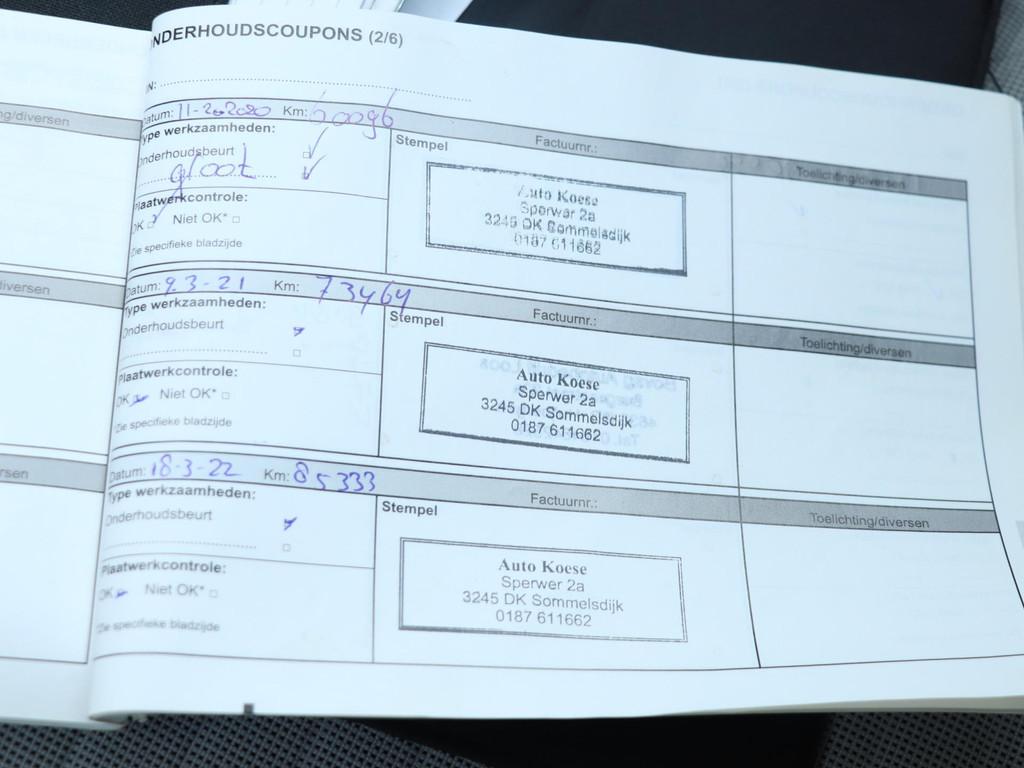 ONDERHOUDSCOUPONS (2/6)
Datum: 11-2-2020 Km: 60096
Type werkzaamheden:
Onderhoudsbeurt
groot
Plaatwerkcontrole:
OK Niet OK*
*Zie specifieke bladzijde
Stempel
Factuurnr.:
Toelichting/diversen
Auto Koese
Sperwer 2a
3245 DK Sommelsdijk
0187 611662
Datum: 9-3-21 Km: 73464
Type werkzaamheden:
Onderhoudsbeurt
Plaatwerkcontrole:
OK Niet OK*
*Zie specifieke bladzijde
Stempel
Factuurnr.:
Toelichting/diversen
Auto Koese
Sperwer 2a
3245 DK Sommelsdijk
0187 611662
Datum: 18-3-22 Km: 85333
Type werkzaamheden:
Onderhoudsbeurt
Plaatwerkcontrole:
OK Niet OK*
*Zie specifieke bladzijde
Stempel
Factuurnr.:
Toelichting/diversen
Auto Koese
Sperwer 2a
3245 DK Sommelsdijk
0187 611662